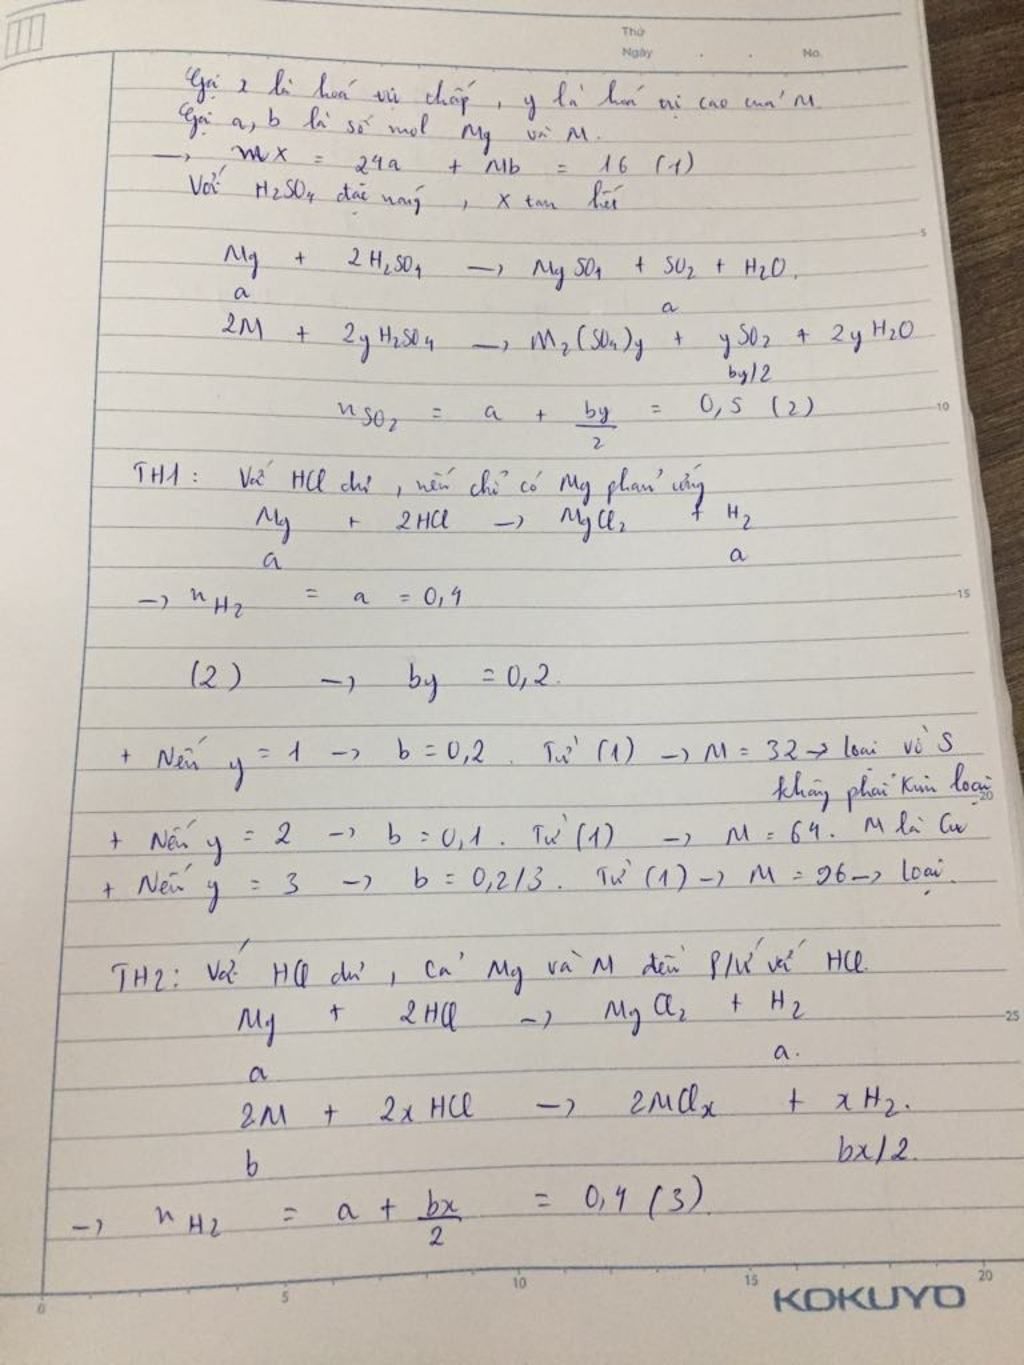 Thứ
Ngày . . No.
Gọi x là hoá trị thấp, y là hoá trị cao của M
Gọi a, b là số mol Mg và M.
→ mX = 24a + Mb = 16 (1)
Với H2SO4 đặc nóng, X tan hết
5
Mg + 2H2SO4 → MgSO4 + SO2 + H2O.
a a
2M + 2yH2SO4 → M2(SO4)y + ySO2 + 2yH2O
by/2
nSO2 = a + by/2 = 0,5 (2)
10
TH1: Với HCl dư, nếu chỉ có Mg phản ứng
Mg + 2HCl → MgCl2 + H2
a a
→ nH2 = a = 0,4
15
(2) → by = 0,2.
+ Nếu y = 1 → b = 0,2. Từ (1) → M = 32 → loại vì S
không phải kim loại
20
+ Nếu y = 2 → b = 0,1. Từ (1) → M = 64. M là Cu
+ Nếu y = 3 → b = 0,2/3. Từ (1) → M = 96 → loại.
TH2: Với HCl dư, Cả Mg và M đều p/ứ với HCl.
Mg + 2HCl → MgCl2 + H2
25
a a.
2M + 2xHCl → 2MClx + xH2.
b bx/2.
→ nH2 = a + bx/2 = 0,4 (3)
0 5 10 15 20
KOKUYO